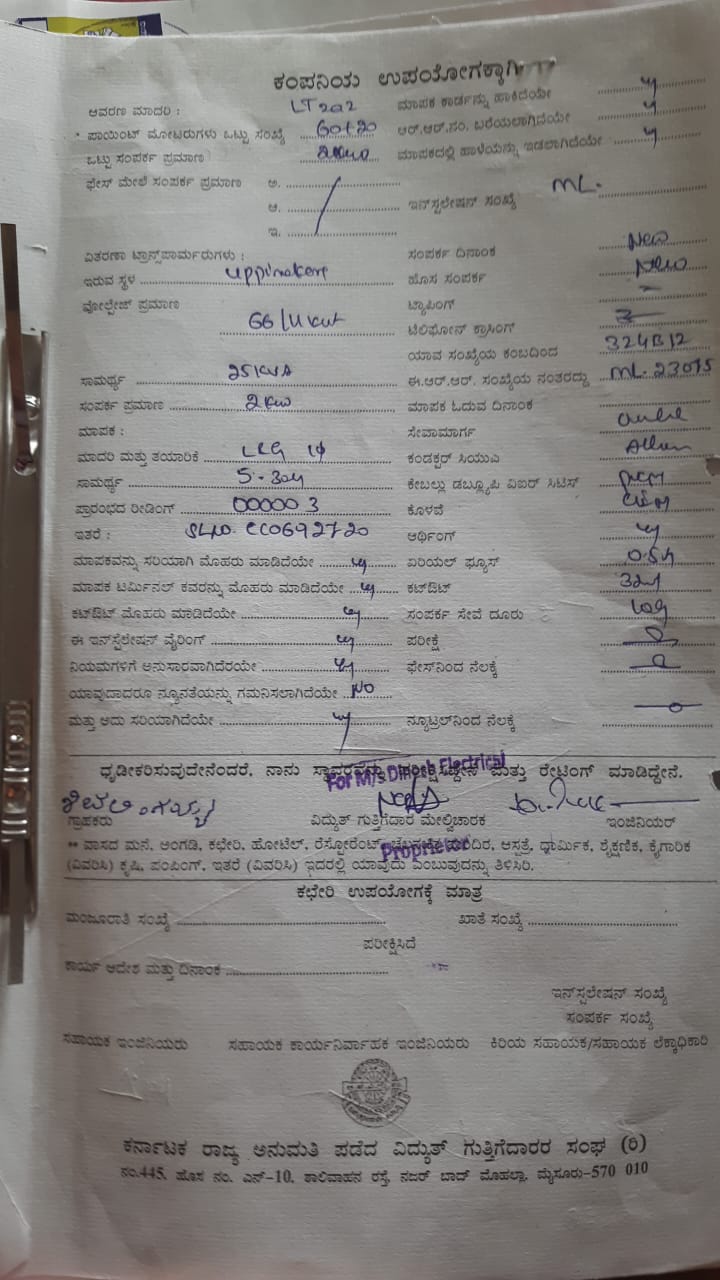 ಕಂಪನಿಯ ಉಪಯೋಗಕ್ಕಾಗಿ
ಆವರಣ ಮಾದರಿ : LT 2a2 ಮಾಪಕ ಕಾರ್ಡನ್ನು ಹಾಕಿದೆಯೇ
* ಪಾಯಿಂಟ್ ಮೋಟರುಗಳು ಒಟ್ಟು ಸಂಖ್ಯೆ 60+20 ಆರ್.ಆರ್.ನಂ. ಬರೆಯಲಾಗಿದೆಯೇ
ಒಟ್ಟು ಸಂಪರ್ಕ ಪ್ರಮಾಣ 2kw ಮಾಪಕದಲ್ಲಿ ಹಾಳೆಯನ್ನು ಇಡಲಾಗಿದೆಯೇ
ಫೇಸ್ ಮೇಲೆ ಸಂಪರ್ಕ ಪ್ರಮಾಣ ಅ.
ಆ. ಇನ್‌ಸ್ಟಲೇಷನ್ ಸಂಖ್ಯೆ ML.
ಇ.
ವಿತರಣಾ ಟ್ರಾನ್ಸ್‌ಪಾರ್ಮರುಗಳು : ಸಂಪರ್ಕ ದಿನಾಂಕ New
ಇರುವ ಸ್ಥಳ uppinakere ಹೊಸ ಸಂಪರ್ಕ New
ವೋಲ್ಟೇಜ್ ಪ್ರಮಾಣ 66/11 ಟ್ಯಾಪಿಂಗ್ –
ಟೆಲಿಫೋನ್ ಕ್ರಾಸಿಂಗ್
ಯಾವ ಸಂಖ್ಯೆಯ ಕಂಬದಿಂದ 324B12
ಸಾಮರ್ಥ್ಯ 25KVA ಈ.ಆರ್.ಆರ್. ಸಂಖ್ಯೆಯ ನಂತರದ್ದು ML. 23075
ಸಂಪರ್ಕ ಪ್ರಮಾಣ 2kw ಮಾಪಕ ಓದುವ ದಿನಾಂಕ
ಮಾಪಕ : ಸೇವಾಮಾರ್ಗ
ಮಾದರಿ ಮತ್ತು ತಯಾರಿಕೆ ಕಂಡಕ್ಟರ್ ಸಿಯುಎ
ಸಾಮರ್ಥ್ಯ 5-30A ಕೇಬಲ್ಲು ಡಬ್ಲ್ಯೂಪಿ ವಿಐಆರ್ ಸಿಟಿಸ್
ಪ್ರಾರಂಭದ ರೀಡಿಂಗ್ 00000 3 ಕೊಳವೆ
ಇತರೆ : SLNO. CC0692720 ಅರ್ಥಿಂಗ್
ಮಾಪಕವನ್ನು ಸರಿಯಾಗಿ ಮೊಹರು ಮಾಡಿದೆಯೇ ಏರಿಯಲ್ ಫ್ಯೂಸ್
ಮಾಪಕ ಟರ್ಮಿನಲ್ ಕವರನ್ನು ಮೊಹರು ಮಾಡಿದೆಯೇ ಕಟ್‌ಔಟ್ 32A
ಕಟ್‌ಔಟ್ ಮೊಹರು ಮಾಡಿದೆಯೇ ಸಂಪರ್ಕ ಸೇವೆ ದೂರು
ಈ ಇನ್‌ಸ್ಟೆಲೇಷನ್ ವೈರಿಂಗ್ ಪರೀಕ್ಷೆ
ನಿಯಮಗಳಿಗೆ ಅನುಸಾರವಾಗಿದೆರಯೇ ಫೇಸ್‌ನಿಂದ ನೆಲಕ್ಕೆ
ಯಾವುದಾದರೂ ನ್ಯೂನತೆಯನ್ನು ಗಮನಿಸಲಾಗಿದೆಯೇ NO
ಮತ್ತು ಅದು ಸರಿಯಾಗಿದೆಯೇ ನ್ಯೂಟ್ರಲ್‌ನಿಂದ ನೆಲಕ್ಕೆ
ಧೃಡೀಕರಿಸುವುದೇನೆಂದರೆ, ನಾನು ಮತ್ತು ರೇಟಿಂಗ್ ಮಾಡಿದ್ದೇನೆ.
For M/s Dinesh Electrical
ಶಿವಲಿಂಗಯ್ಯ
ಗ್ರಾಹಕರು ವಿದ್ಯುತ್ ಗುತ್ತಿಗೆದಾರ ಮೇಲ್ವಿಚಾರಕ ಇಂಜಿನಿಯರ್
Proprietor
** ವಾಸದ ಮನೆ, ಅಂಗಡಿ, ಕಛೇರಿ, ಹೋಟೆಲ್, ರೆಸ್ಟೋರೆಂಟ್, ಆಸ್ಪತ್ರೆ, ಧಾರ್ಮಿಕ, ಶೈಕ್ಷಣಿಕ, ಕೈಗಾರಿಕ
(ವಿವರಿಸಿ) ಕೃಷಿ, ಪಂಪಿಂಗ್, ಇತರೆ (ವಿವರಿಸಿ) ಇದರಲ್ಲಿ ಯಾವುದು ಎಂಬುವುದನ್ನು ತಿಳಿಸಿರಿ.
ಕಛೇರಿ ಉಪಯೋಗಕ್ಕೆ ಮಾತ್ರ
ಮಂಜೂರಾತಿ ಸಂಖ್ಯೆ ಖಾತೆ ಸಂಖ್ಯೆ
ಪರೀಕ್ಷಿಸಿದೆ
ಕಾರ್ಯ ಆದೇಶ ಮತ್ತು ದಿನಾಂಕ
ಇನ್‌ಸ್ಟಲೇಷನ್ ಸಂಖ್ಯೆ
ಸಂಪರ್ಕ ಸಂಖ್ಯೆ
ಸಹಾಯಕ ಇಂಜಿನಿಯರು ಸಹಾಯಕ ಕಾರ್ಯನಿರ್ವಾಹಕ ಇಂಜಿನಿಯರು ಕಿರಿಯ ಸಹಾಯಕ/ಸಹಾಯಕ ಲೆಕ್ಕಾಧಿಕಾರಿ
ಕರ್ನಾಟಕ ರಾಜ್ಯ ಅನುಮತಿ ಪಡೆದ ವಿದ್ಯುತ್ ಗುತ್ತಿಗೆದಾರರ ಸಂಘ (ರಿ)
ನಂ.445, ಹೊಸ ನಂ. ಎನ್-10, ಶಾಲಿವಾಹನ ರಸ್ತೆ, ನಜರ್ ಬಾದ್ ಮೊಹಲ್ಲಾ, ಮೈಸೂರು-570 010